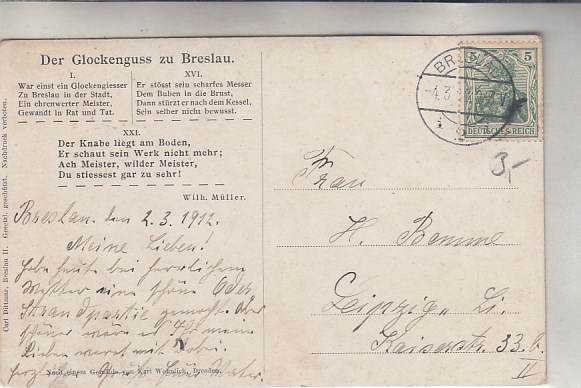 Der Glockenguss zu Breslau.
I.
War einst ein Glockengiesser
Zu Breslau in der Stadt,
Ein ehrenwerter Meister,
Gewandt in Rat und Tat.
XVI.
Er stösst sein scharfes Messer
Dem Buben in die Brust,
Dann stürzt er nach dem Kessel,
Sein selber nicht bewusst.
XXI.
Der Knabe liegt am Boden,
Er schaut sein Werk nicht mehr;
Ach Meister, wilder Meister,
Du stiessest gar zu sehr!
Wilh. Müller.
Breslau. den 2.3.1912.
Meine Lieben!
habe heute bei herrlichem
Wetter eine schöne Oder
Strandpartie gemacht. Aber
schöner wäre es Ihr meine
Lieben waret mit dabei.
herzl
Vater.
Nach einem Gemälde von Karl Wohnlich, Dresden.
Carl Dittmar, Breslau II. Gesetzl. geschützt. Nachdruck verboten.
BRESLAU
5
DEUTSCHES REICH
3,-
Frau
H. Bemme
Leipzig Li.
Kaiserstr. 33.b.
II